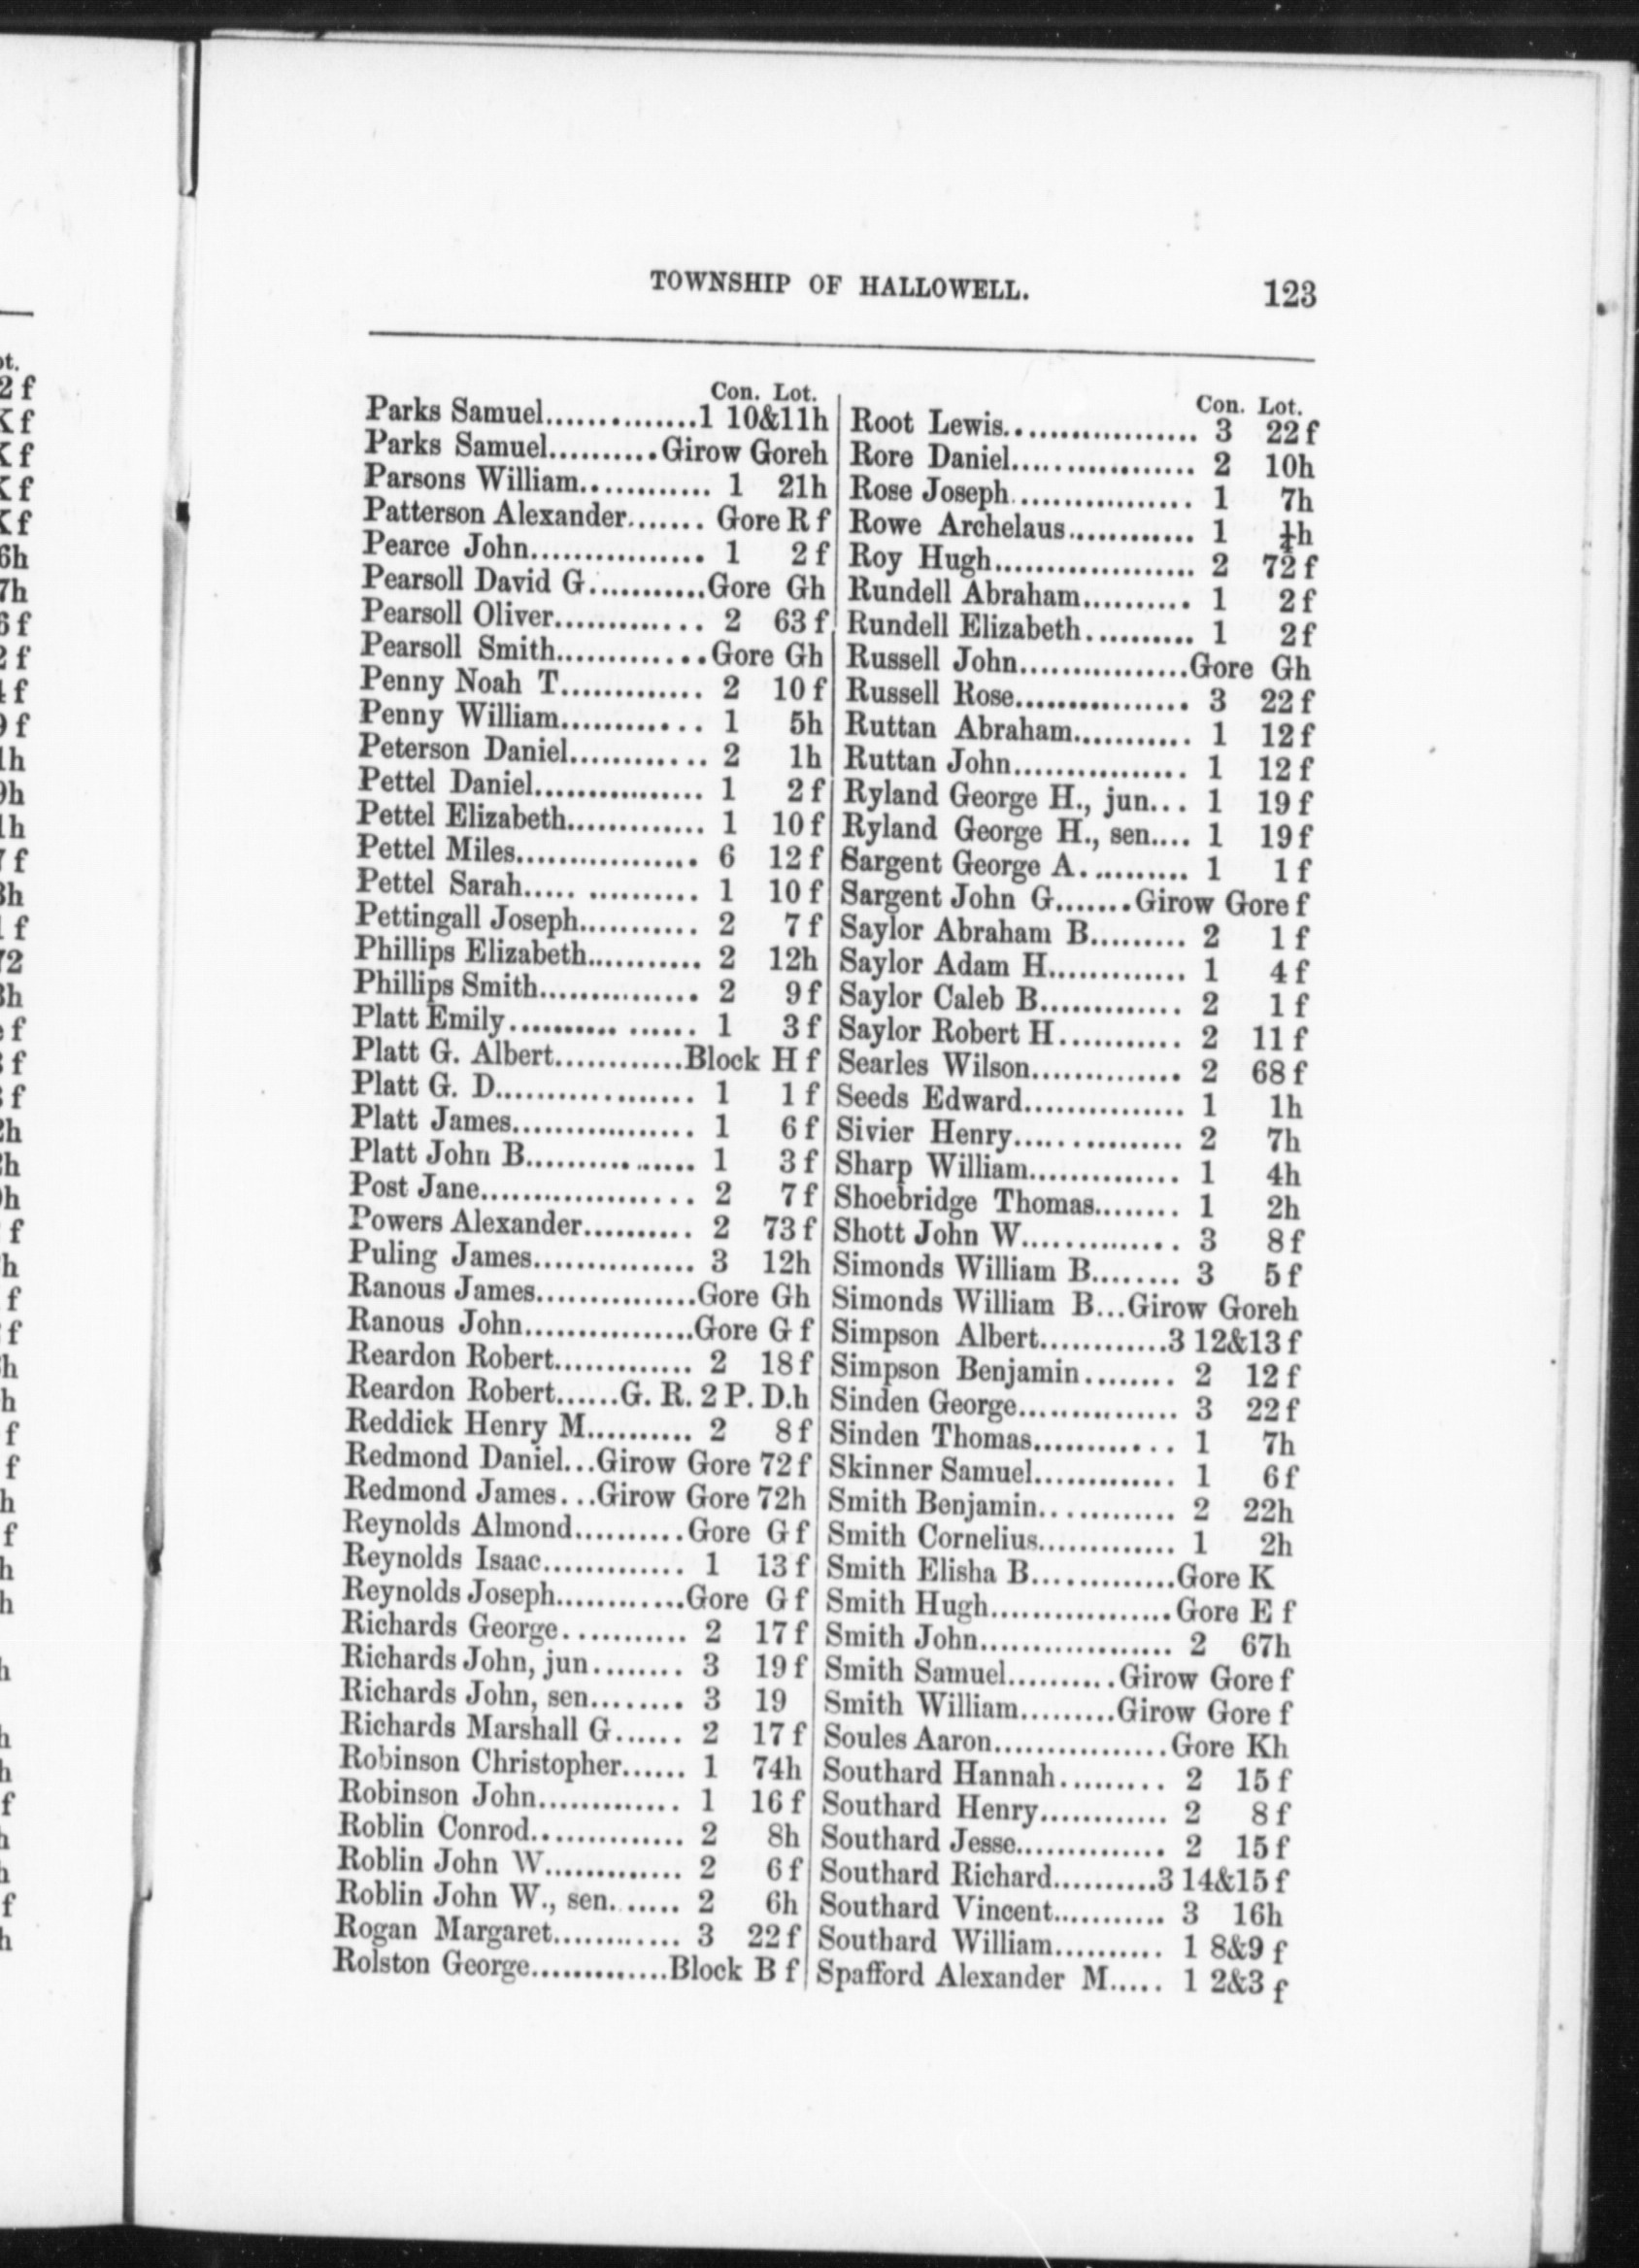 TOWNSHIP OF HALLOWELL. 123
Con. Lot.
Parks Samuel..............1 10&11h
Parks Samuel..........Girow Goreh
Parsons William............ 1 21h
Patterson Alexander....... Gore R f
Pearce John................ 1 2 f
Pearsoll David G...........Gore Gh
Pearsoll Oliver............. 2 63 f
Pearsoll Smith.............Gore Gh
Penny Noah T............. 2 10 f
Penny William............ 1 5h
Peterson Daniel............ 2 1h
Pettel Daniel................ 1 2 f
Pettel Elizabeth............. 1 10 f
Pettel Miles................. 6 12 f
Pettel Sarah..... .......... 1 10 f
Pettingall Joseph........... 2 7 f
Phillips Elizabeth........... 2 12h
Phillips Smith............... 2 9 f
Platt Emily.......... ...... 1 3 f
Platt G. Albert............Block H f
Platt G. D................... 1 1 f
Platt James................. 1 6 f
Platt John B................ 1 3 f
Post Jane................... 2 7 f
Powers Alexander.......... 2 73 f
Puling James............... 3 12h
Ranous James...............Gore Gh
Ranous John................Gore G f
Reardon Robert............. 2 18 f
Reardon Robert......G. R. 2 P. D.h
Reddick Henry M.......... 2 8 f
Redmond Daniel...Girow Gore 72 f
Redmond James...Girow Gore 72h
Reynolds Almond..........Gore G f
Reynolds Isaac............. 1 13 f
Reynolds Joseph............Gore G f
Richards George............ 2 17 f
Richards John, jun........ 3 19 f
Richards John, sen........ 3 19
Richards Marshall G...... 2 17 f
Robinson Christopher...... 1 74h
Robinson John............. 1 16 f
Roblin Conrod.............. 2 8h
Roblin John W............. 2 6 f
Roblin John W., sen....... 2 6h
Rogan Margaret............ 3 22 f
Rolston George.............Block B f
Con. Lot.
Root Lewis.................. 3 22 f
Rore Daniel................. 2 10h
Rose Joseph................. 1 7h
Rowe Archelaus............ 1 ¼h
Roy Hugh................... 2 72 f
Rundell Abraham.......... 1 2 f
Rundell Elizabeth.......... 1 2 f
Russell John................Gore Gh
Russell Rose................ 3 22 f
Ruttan Abraham........... 1 12 f
Ruttan John................ 1 12 f
Ryland George H., jun... 1 19 f
Ryland George H., sen.... 1 19 f
Sargent George A.......... 1 1 f
Sargent John G.......Girow Gore f
Saylor Abraham B......... 2 1 f
Saylor Adam H............. 1 4 f
Saylor Caleb B............. 2 1 f
Saylor Robert H........... 2 11 f
Searles Wilson.............. 2 68 f
Seeds Edward............... 1 1h
Sivier Henry................ 2 7h
Sharp William.............. 1 4h
Shoebridge Thomas........ 1 2h
Shott John W............... 3 8 f
Simonds William B........ 3 5 f
Simonds William B...Girow Goreh
Simpson Albert............3 12&13 f
Simpson Benjamin........ 2 12 f
Sinden George............... 3 22 f
Sinden Thomas............. 1 7h
Skinner Samuel............. 1 6 f
Smith Benjamin............. 2 22h
Smith Cornelius............. 1 2h
Smith Elisha B..............Gore K
Smith Hugh.................Gore E f
Smith John.................. 2 67h
Smith Samuel..........Girow Gore f
Smith William.........Girow Gore f
Soules Aaron................Gore Kh
Southard Hannah.......... 2 15 f
Southard Henry............ 2 8 f
Southard Jesse.............. 2 15 f
Southard Richard..........3 14&15 f
Southard Vincent........... 3 16h
Southard William.......... 1 8&9 f
Spafford Alexander M..... 1 2&3 f